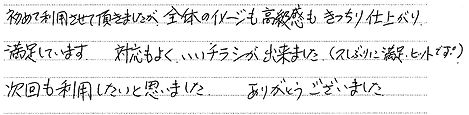 初めて利用させて頂きましたが、全体のイメージも高級感も きっちり仕上がり
満足しています 対応もよく、いいチラシが出来ました（久しぶりに満足、ヒットです。）
次回も利用したいと思いました ありがとうございました